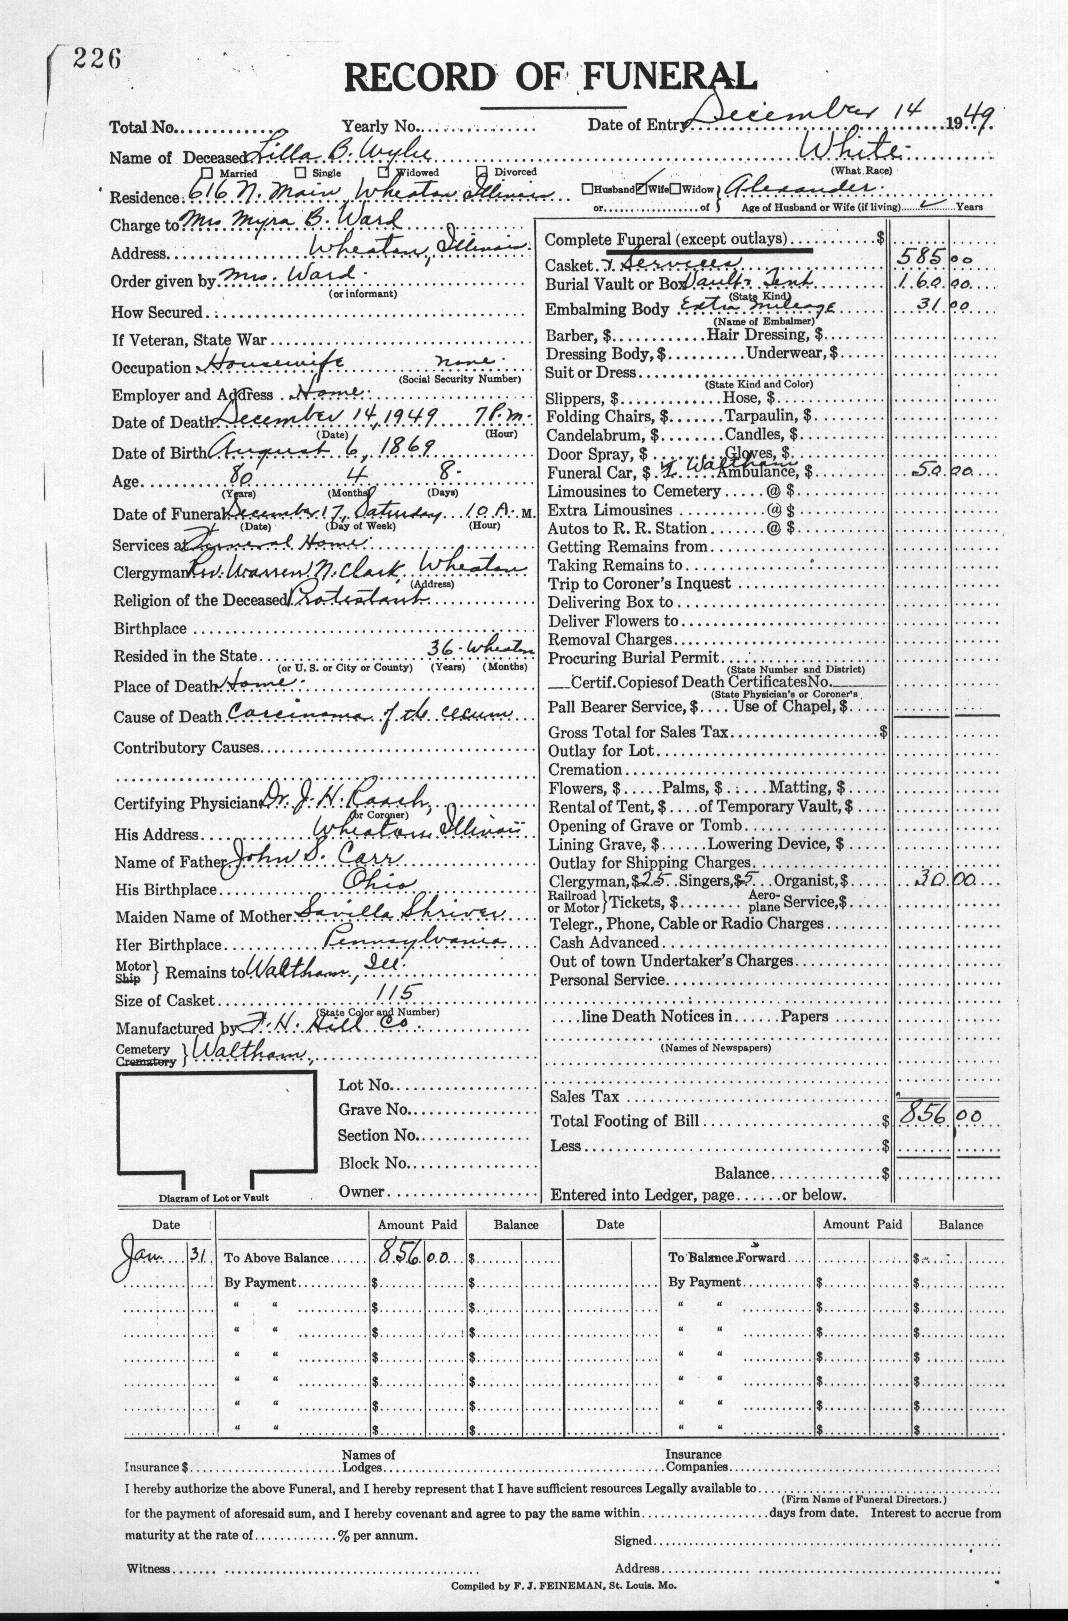 226
RECORD OF FUNERAL
Total No. Yearly No. Date of Entry December 14 1949
Name of Deceased Lilla B. Wylie White
Married Single Widowed Divorced (What Race)
Residence 616 N. Main, Wheaton Illinois Husband Wife Widow Alexander
or of Age of Husband or Wife (if living) Years
Charge to Mrs Myra B. Ward
Address Wheaton, Illinois
Order given by Mrs. Ward
(or informant)
How Secured
If Veteran, State War
Occupation Housewife none
(Social Security Number)
Employer and Address Home
Date of Death December 14, 1949 7 P.m.
(Date) (Hour)
Date of Birth August 6, 1869
Age 80 4 8
(Years) (Months) (Days)
Date of Funeral December 17, Saturday 10 A. M.
(Date) (Day of Week) (Hour)
Services at Funeral Home
Clergyman Rev. Warren N. Clark, Wheaton
(Address)
Religion of the Deceased Protestant
Birthplace
Resided in the State 36 - Wheaton
(or U. S. or City or County) (Years) (Months)
Place of Death Home
Cause of Death Carcinoma of the cecum
Contributory Causes
Certifying Physician Dr. J. H. Raach,
(or Coroner)
His Address Wheaton, Illinois
Name of Father John S. Carr
His Birthplace Ohio
Maiden Name of Mother Savilla Shriver
Her Birthplace Pennsylvania
Motor Ship } Remains to Waltham, Ill
Size of Casket 115
(State Color and Number)
Manufactured by F. H. Hill Co
Cemetery Crematory } Waltham,
Lot No.
Grave No.
Section No.
Block No.
Owner
Diagram of Lot or Vault
Complete Funeral (except outlays) $
Casket & Services 585 00
Burial Vault or Box Vault & Tent 160 00
(State Kind)
Embalming Body Extra mileage 31 00
(Name of Embalmer)
Barber, $ Hair Dressing, $
Dressing Body, $ Underwear, $
Suit or Dress
(State Kind and Color)
Slippers, $ Hose, $
Folding Chairs, $ Tarpaulin, $
Candelabrum, $ Candles, $
Door Spray, $ Gloves, $
Funeral Car, $ Waltham Ambulance, $ 50 00
Limousines to Cemetery @ $
Extra Limousines @ $
Autos to R. R. Station @ $
Getting Remains from
Taking Remains to
Trip to Coroner's Inquest
Delivering Box to
Deliver Flowers to
Removal Charges
Procuring Burial Permit
(State Number and District)
Certif. Copies of Death Certificates No.
(State Physician's or Coroner's
Pall Bearer Service, $ Use of Chapel, $
Gross Total for Sales Tax $
Outlay for Lot
Cremation
Flowers, $ Palms, $ Matting, $
Rental of Tent, $ of Temporary Vault, $
Opening of Grave or Tomb
Lining Grave, $ Lowering Device, $
Outlay for Shipping Charges
Clergyman, $25 Singers, $5 Organist, $ 30 00
Railroad or Motor } Tickets, $ Aero-plane Service, $
Telegr., Phone, Cable or Radio Charges
Cash Advanced
Out of town Undertaker's Charges
Personal Service
line Death Notices in Papers
(Names of Newspapers)
Sales Tax
Total Footing of Bill $ 856 00
Less $
Balance $
Entered into Ledger, page or below.
Date Amount Paid Balance Date Amount Paid Balance
Jan. 31 To Above Balance 856 00 $ To Balance Forward $
By Payment $ $ By Payment $ $
" " $ $ " " $ $
" " $ $ " " $ $
" " $ $ " " $ $
" " $ $ " " $ $
" " $ $ " " $ $
" " $ $ " " $ $
Insurance $ Names of Lodges Insurance Companies
I hereby authorize the above Funeral, and I hereby represent that I have sufficient resources Legally available to
(Firm Name of Funeral Directors.)
for the payment of aforesaid sum, and I hereby covenant and agree to pay the same within days from date. Interest to accrue from
maturity at the rate of % per annum.
Signed
Witness Address
Compiled by F. J. FEINEMAN, St. Louis. Mo.